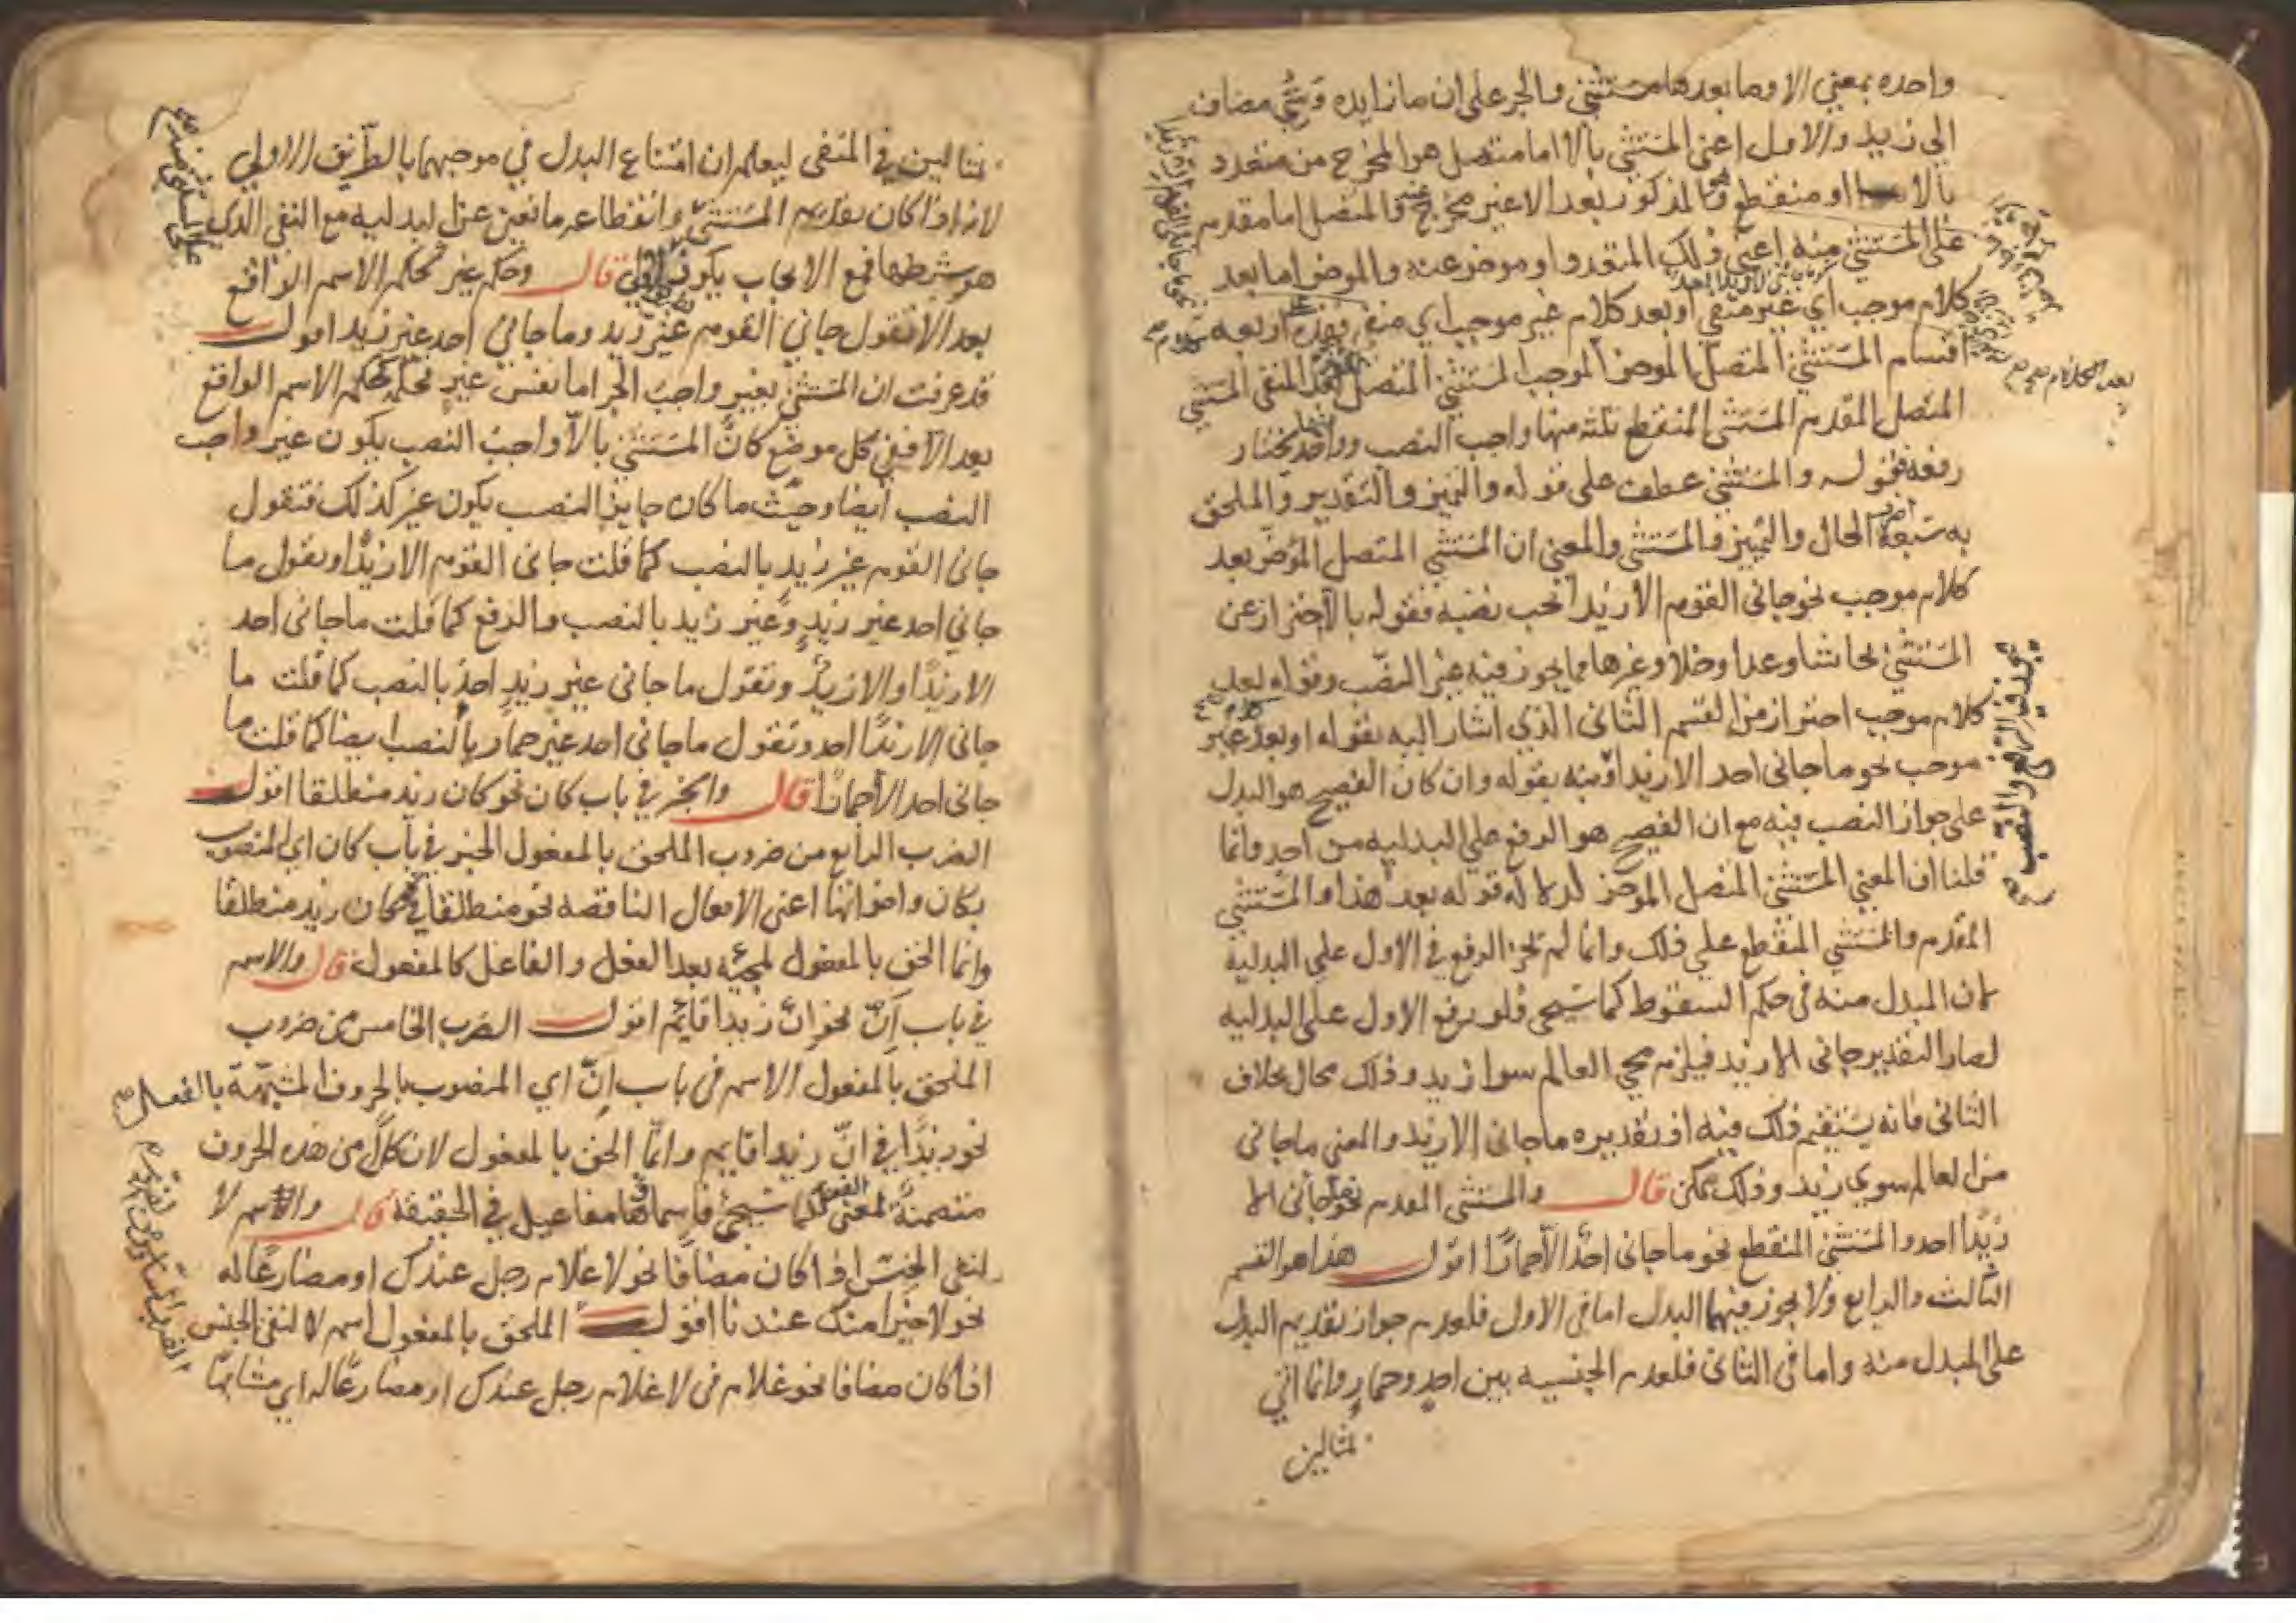 واحده بمعنى الا وما بعدها مستثنى والجر على ان ما زايده وسى مضاف
الى زيد والاول اعنى المستثنى بالا اما متصل هو المخرج من متعدد
بالا او منقطع وهو المذكور بعد الا غير مخرج عنه والمتصل اما مقدم
على المستثنى منه اعنى ذلك المتعدد او موخر عنه والموخر اما بعد
كلام موجب اي غير منفي او بعد كلام غير موجب اي منفي فهذه اربعه
اقسام المستثنى المتصل الموخر الموجب المستثنى المتصل بعد المنفى المستثنى
المتصل المقدم المستثنى المنقطع ثلثه منها واجب النصب وواحد يختار
رفعه فقوله والمستثنى عطف على قوله والتميز والتقدير والملحق
به سبعة اضرب الحال والتمييز والمستثنى والمعنى ان المستثنى المتصل الموخر بعد
كلام موجب نحو جانى القوم الا زيدا يجب نصبه فقوله بالا احتراز عن
المستثنى بحاشا وعدا وخلا وغيرها مما يجوز فيه غير النصب وقوله بعد
كلام موجب احتراز من القسم الثانى الذي اشار اليه بقوله او بعد غير
موجب نحو ما جانى احد الا زيدا ونبه بقوله وان كان الفصيح هو البدل
على جواز النصب فيه مع ان الفصيح هو الرفع على البدليه من احد وانما
قلنا ان المعنى المستثنى المتصل الموخر لدلالة قوله بعد هذا والمستثنى
المقدم والمستثنى المنقطع على ذلك وانما لم يجز الرفع في الاول على البدلية
لان المبدل منه فى حكم السقوط كما سيجى فلو رفع الاول على البدليه
لصار التقدير جانى الا زيد فيلزم مجي العالم سوا زيد وذلك محال بخلاف
الثانى فانه يستقيم ذلك فيه اذ تقديره ما جانى الا زيد والمعنى ما جانى
من العالم سوي زيد وذلك ممكن قال والمستثنى المقدم نحو ما جانى الا
زيدا احد والمستثنى المنقطع نحو ما جانى احد الا حمارا اقول هذا هو القسم
الثالث والرابع ولا يجوز فيهما البدل اما فى الاول فلعدم جواز تقديم البدل
على المبدل منه واما فى الثانى فلعدم الجنسيه بين احد وحمار وانما اتي
بمثالين
بعد الكلام صح
يجوز فيه الرفع والنصب صح
بمثالين في المنفى ليعلم ان امتناع البدل في موجبهما بالطريق الاولي
لانه اذا كان تقديم المستثنى وانقطاعه مانعين عن البدليه مع النفى الذي
هو شرطها فمع الايجاب يكون اولى قال وحكم غير كحكم الاسم الواقع
بعد الا تقول جاني القوم غير زيد وما جاني احد غير زيد اقول
قد عرفت ان المستثنى بغير واجب الجر اما نفس غير فحكمه كحكم الاسم الواقع
بعد الا ففي كل موضع كان المستثنى بالا واجب النصب يكون غير واجب
النصب ايضا وحيث ما كان جايز النصب يكون غير كذلك فتقول
جانى القوم غير زيد بالنصب كما قلت جانى القوم الا زيدا وتقول ما
جاني احد غير زيد وغير زيد بالنصب والرفع كما قلت ما جانى احد
الا زيدا والا زيد وتقول ما جانى غير زيد احد بالنصب كما قلت ما
جانى الا زيدا احد وتقول ما جانى احد غير حمار بالنصب ايضا كما قلت ما
جانى احد الا حمارا قال والخبر في باب كان نحو كان زيد منطلقا اقول
الضرب الرابع من ضروب الملحق بالمفعول الخبر في باب كان اي المنصوب
بكان واخواتها اعنى الافعال الناقصه نحو منطلقا في كان زيد منطلقا
وانما الحق بالمفعول لمجيئه بعد الفعل والفاعل كالمفعول قال والاسم
في باب ان نحو ان زيدا قايم اقول الضرب الخامس من ضروب
الملحق بالمفعول الاسم فى باب ان اي المنصوب بالحروف المشبهة بالفعل
نحو زيدا في ان زيدا قايم وانما الحق بالمفعول لان كلا من هذه الحروف
متضمنة لمعنى الفعل كما سيجئ فاسماؤها مفاعيل في الحقيقة قال والاسم لا
لنفى الجنس اذا كان مضافا نحو لا غلام رجل عندك او مضارعا له
نحو لا خيرا منك عندنا اقول الملحق بالمفعول اسم لا لنفى الجنس
اذا كان مضافا نحو غلام فى لا غلام رجل عندك او مضارعا له اي مشابها
على المستثنى منه صح
الضرب السادس من ضروب